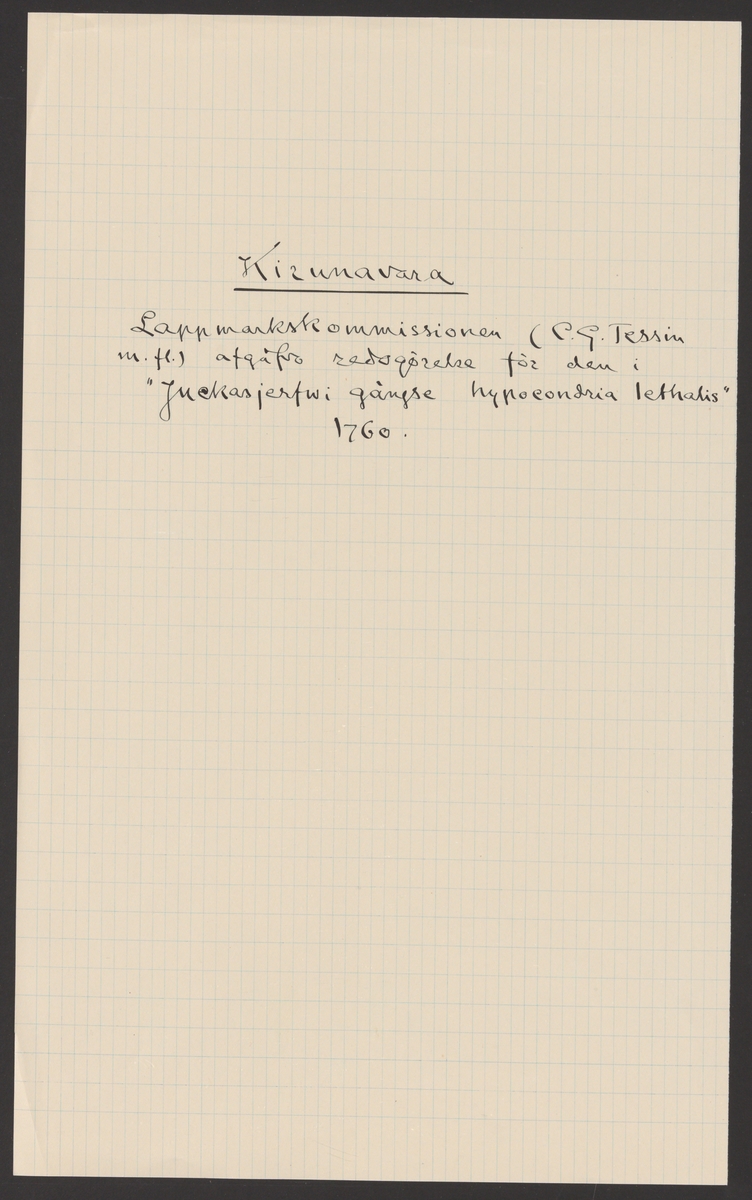 Kirunavara
Lappmarkskommissionen (C.G. Tessin
m.fl.) afgåfvo redogörelse för den i
"Juckasjerfwi gångse hypocondria lethalis"
1760.